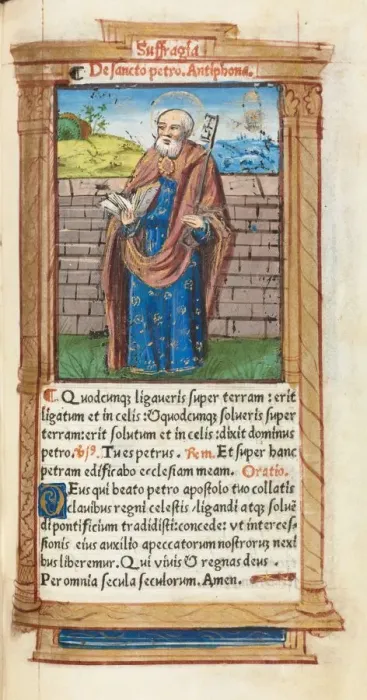 Suffragia
¶ De sancto petro. Antiphona.
¶ Quodcunqꝫ ligaveris super terram : erit
ligatum et in celis : & quodcunqꝫ solveris super
terram: erit solutum et in celis : dixit dominus
petro. Vẜ. Tu es petrus . Rem. Et super hanc
petram edificabo ecclesiam meam. Oratio.
DEus qui beato petro apostolo tuo collatis
clavibus regni celestis / ligandi atqꝫ solvē
di pontificium tradidisti: concede: vt interces-
sionis eius auxilio a peccatorum nostrorum nexi
bus liberemur. Qui vivis & regnas deus .
Per omnia secula seculorum. Amen.